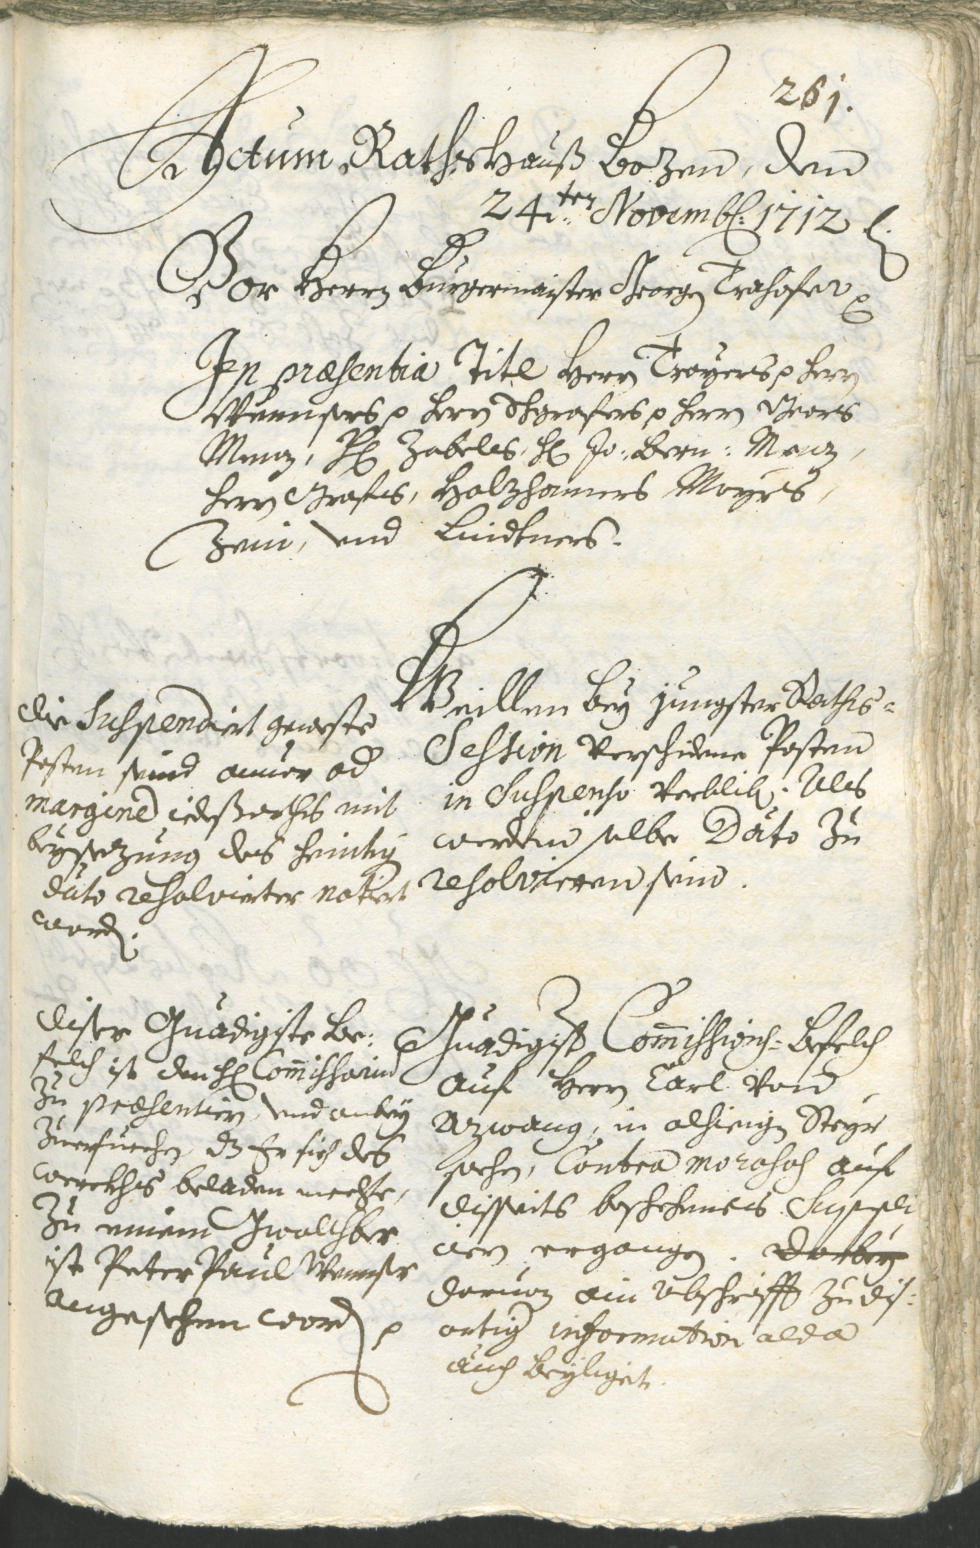 261.
Actum Rathshauß Bozen, den
24.ten Novemb: 1712
Vor Herrn Burgermaister Georgen Trahofer
Jn præsentia Titl Herrn Troyers p herrn
Wennsers p herrn Grafers p herrn Georg
Menz, H: Zabeles, H: Jo: Bern: Menz,
herrn Grafes, Holzhamers Mayrs,
Zeni, und Lindtners.
Weillen bey jungster Raths-
Session verschidene Posten
in Suspenso verblib. Als
werden selbe Dato zu
resolvieren sein.
die Suspendiert geweste
Posten seind anuor ad
marginem iedeßorths mit
beysezung des heintig
dato resolvierter notiert
word.
Gnadigist Commissions-befelch
auf Herrn Carl von
Azwang, in alhiesigen Steyr
sachen, Contra morosos auf
disseits beschehenes Suppli
ciern ergangen. Darbey
daruon ain Abschrifft zu dis-
ortig information alda
auch beyligt.
diser Gnadigiste Be-
felch ist den H: Commissario
zu præsentiern, und anbey
zuersuechen, dz Er sich des
werckhs beladen mechte,
zu einem Gwalthber
ist Peter Paul Wennser
angesehen word p